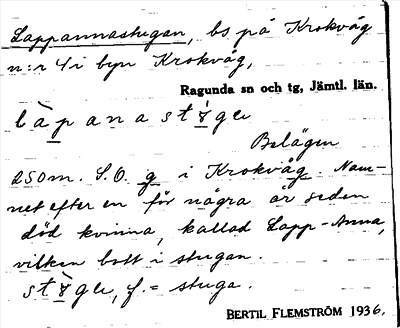 Lappannastugan, bs på Krokvåg
n:r 4 i byn Krokvåg,
Ragunda sn och tg, Jämtl. län.
Belägen
250m. S.O. g i Krokvåg. Nam-
net efter en för några år sedan
död kvinna, kallad Lapp-Anna,
vilken bott i stugan.
f. = stuga.
BERTIL FLEMSTRÖM 1936.